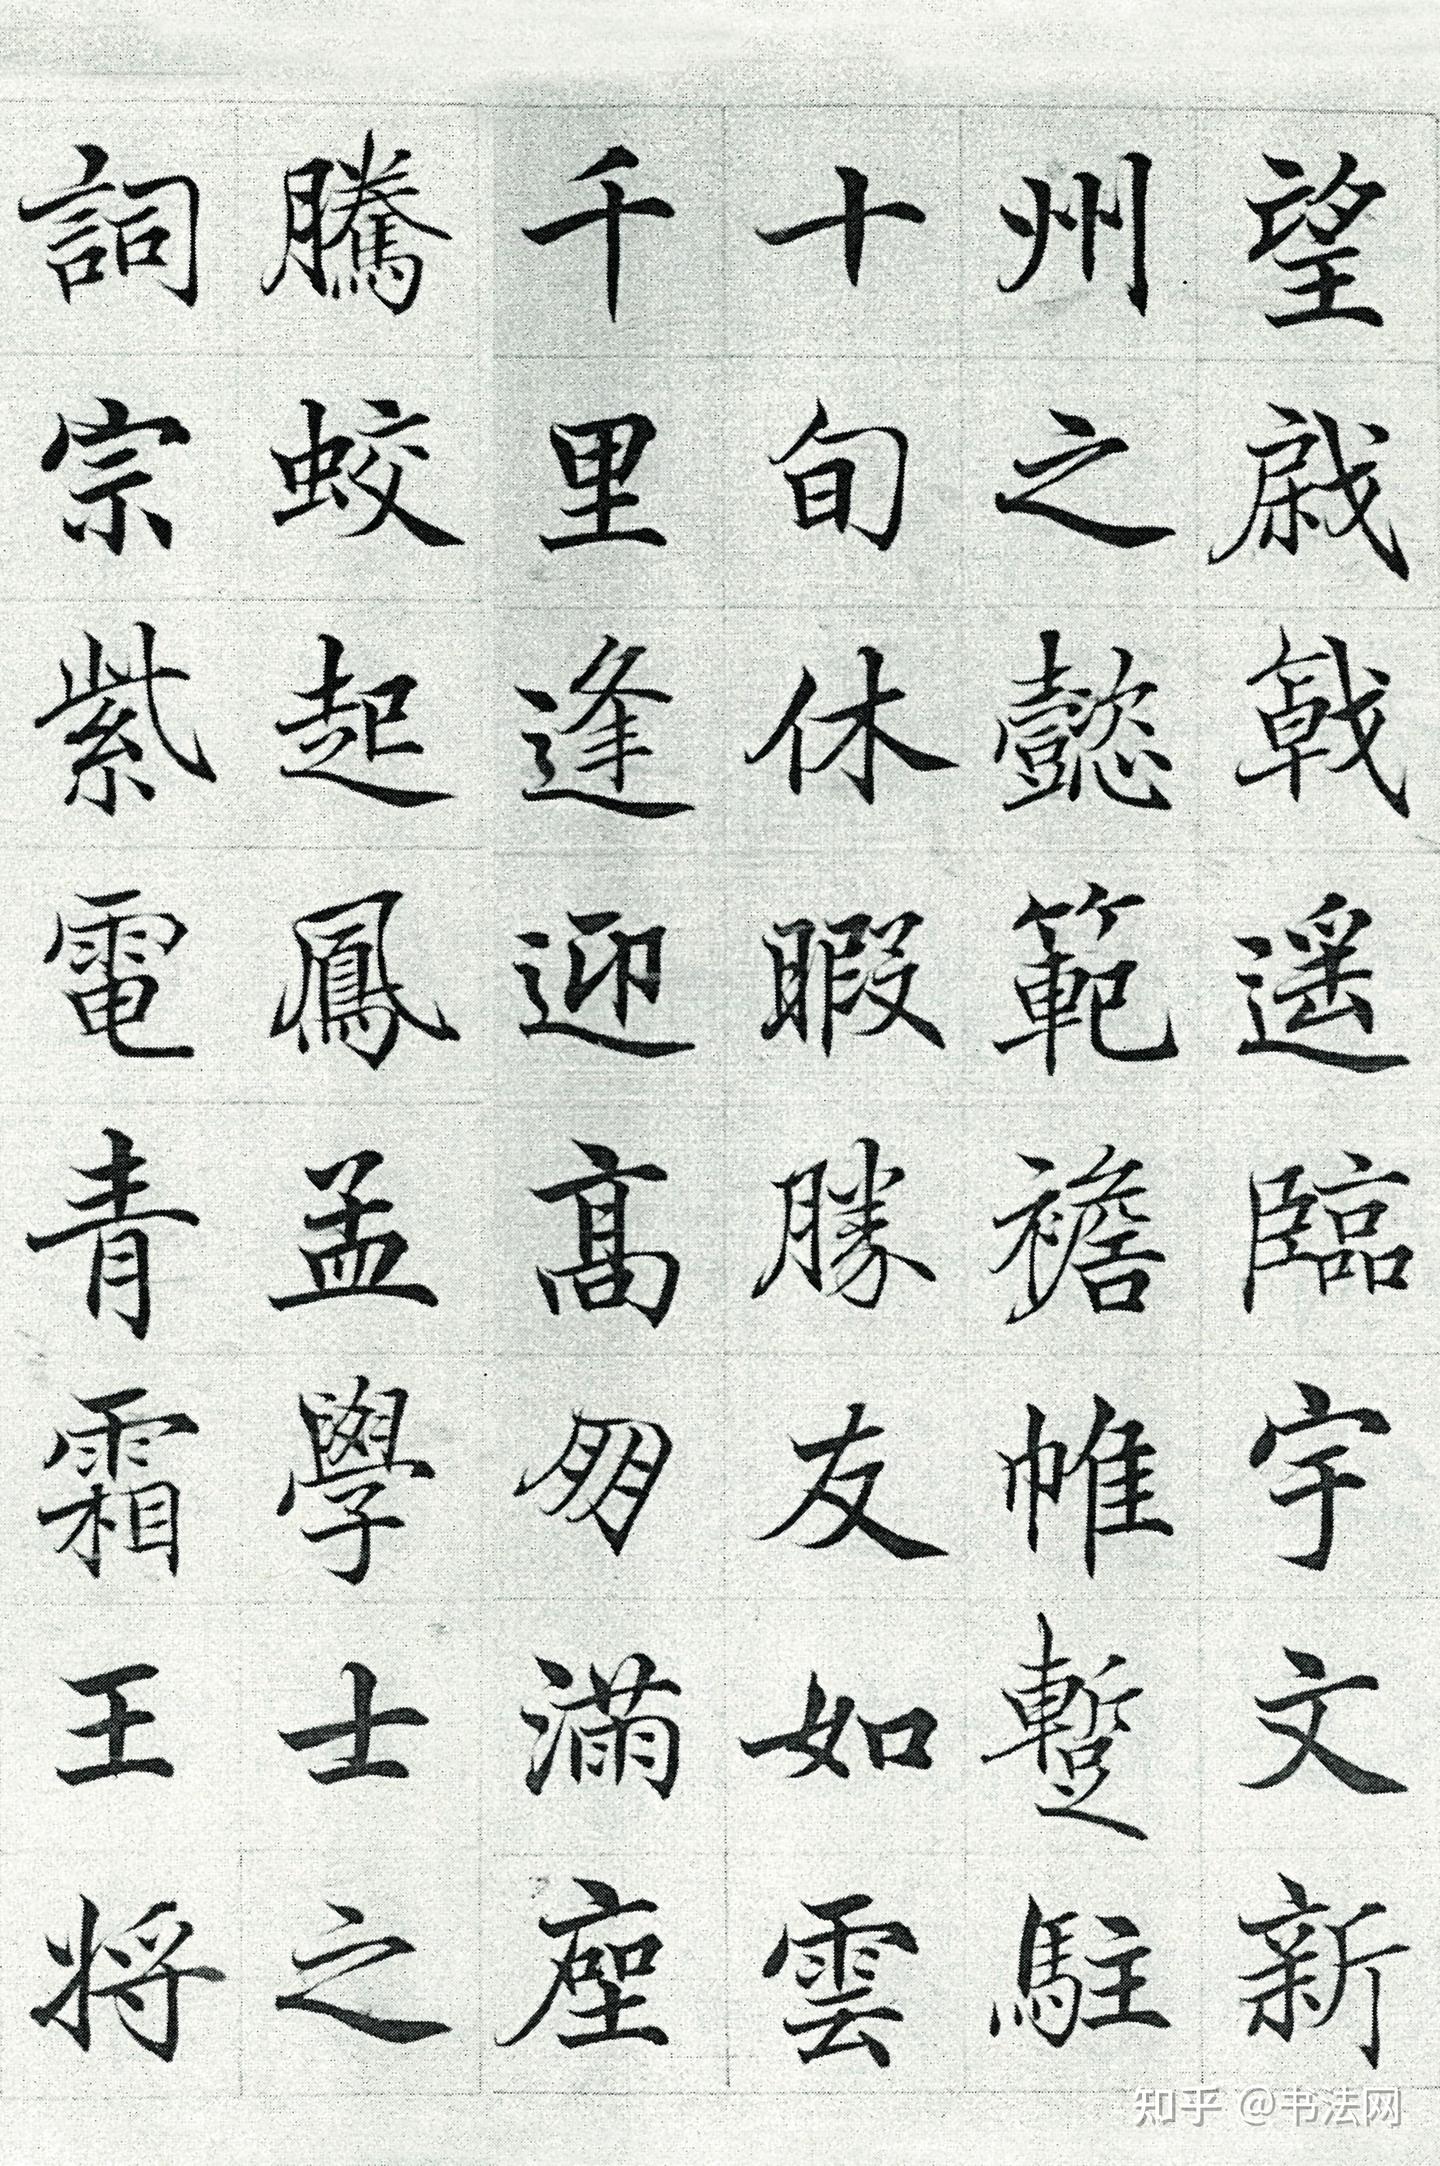 望戚戟遥臨宇文新
州之懿範襜帷蹔駐
十旬休暇勝友如雲
千里逢迎高朋滿座
騰蛟起鳳孟學士之
詞宗紫電青霜王將
知乎 @书法网